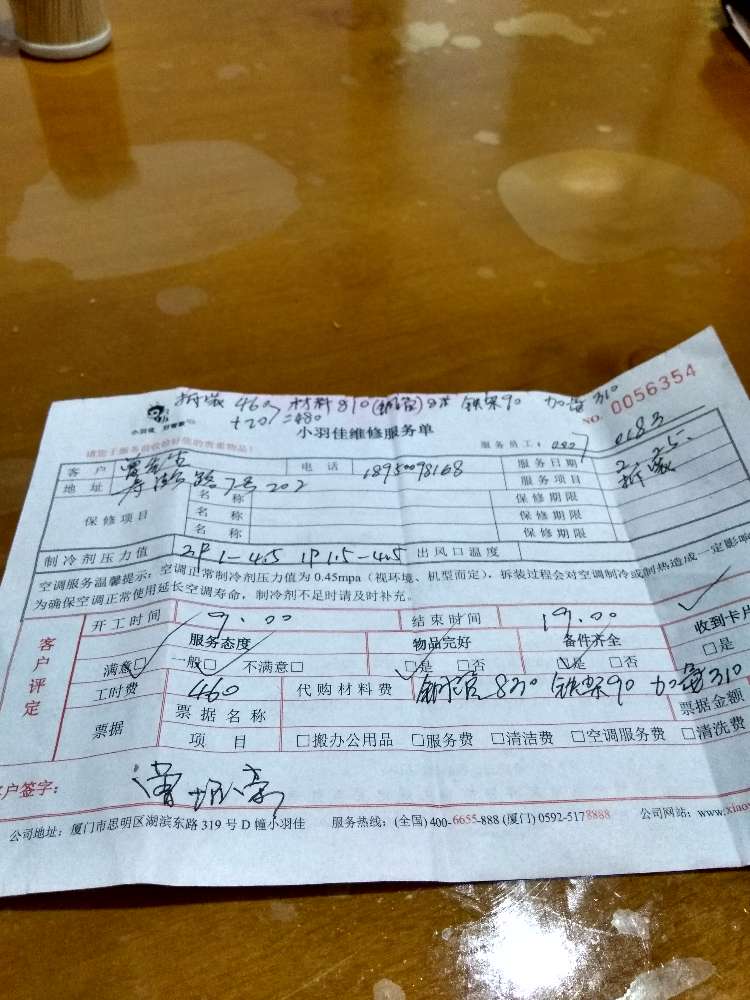 拆装 460 材料810(铜管)8米 铁架90 加雪310
+20/=480
小羽佳 好管家
NO. 0056354
小羽佳维修服务单
服务员工: 082 0183
客户 电话 18950098168 服务日期 2.25.
地址 路7号202 服务项目 拆装
保修项目 名称 保修期限
名称 保修期限
名称 保修期限
制冷剂压力值 2P 1-4.5 1P 1.5-4.5 出风口温度
空调服务温馨提示:空调正常制冷剂压力值为 0.45mpa(视环境、机型而定),拆装过程会对空调制冷或制热造成一定影响
为确保空调正常使用延长空调寿命,制冷剂不足时请及时补充。
客户评定
开工时间 9.00 结束时间 19.00
服务态度 物品完好 备件齐全 收到卡片
满意□ 一般□ 不满意□ □是 □否 □是 □否 □是
工时费 460 代购材料费 铜管 830 铁架90 加雪310
票据 票据名称 票据金额
项目 □搬办公用品 □服务费 □清洁费 □空调服务费 □清洗费
客户签字:
公司地址:厦门市思明区湖滨东路 319 号 D 幢小羽佳 服务热线:(全国)400-6655-888 (厦门) 0592-5178888 公司网站:www.xiao